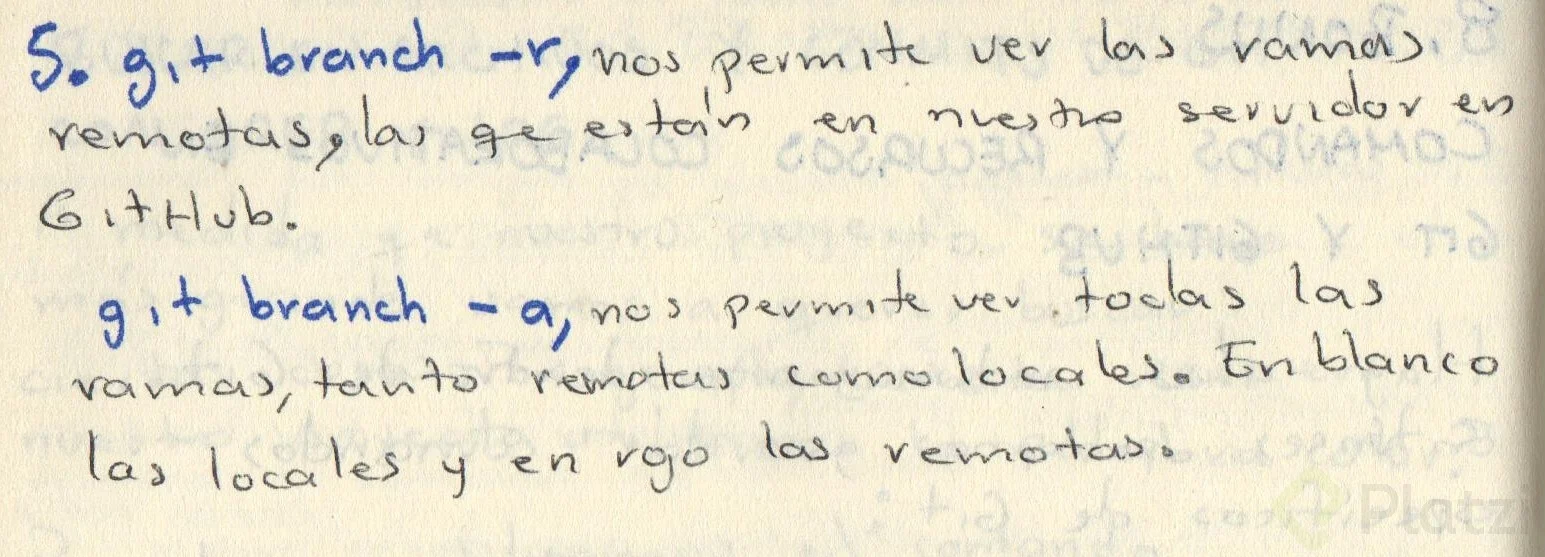 5. git branch -r, nos permite ver las ramas
remotas, las qe están en nuestro servidor en
GitHub.
git branch -a, nos permite ver todas las
ramas, tanto remotas como locales. En blanco
las locales y en rojo las remotas.
Platzi